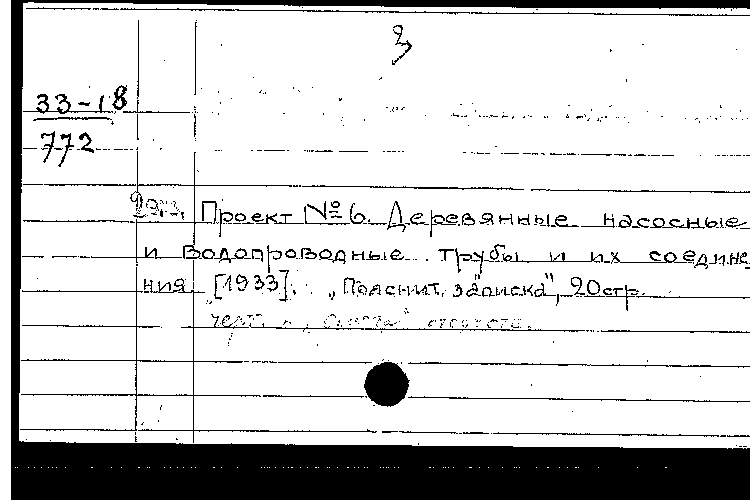 3
33-18
772
2экз. Проект № 6. Деревянные насосные
и водопроводные трубы и их соедине
ния [1933]. „Пояснит. записка", 20 стр.
черт. и